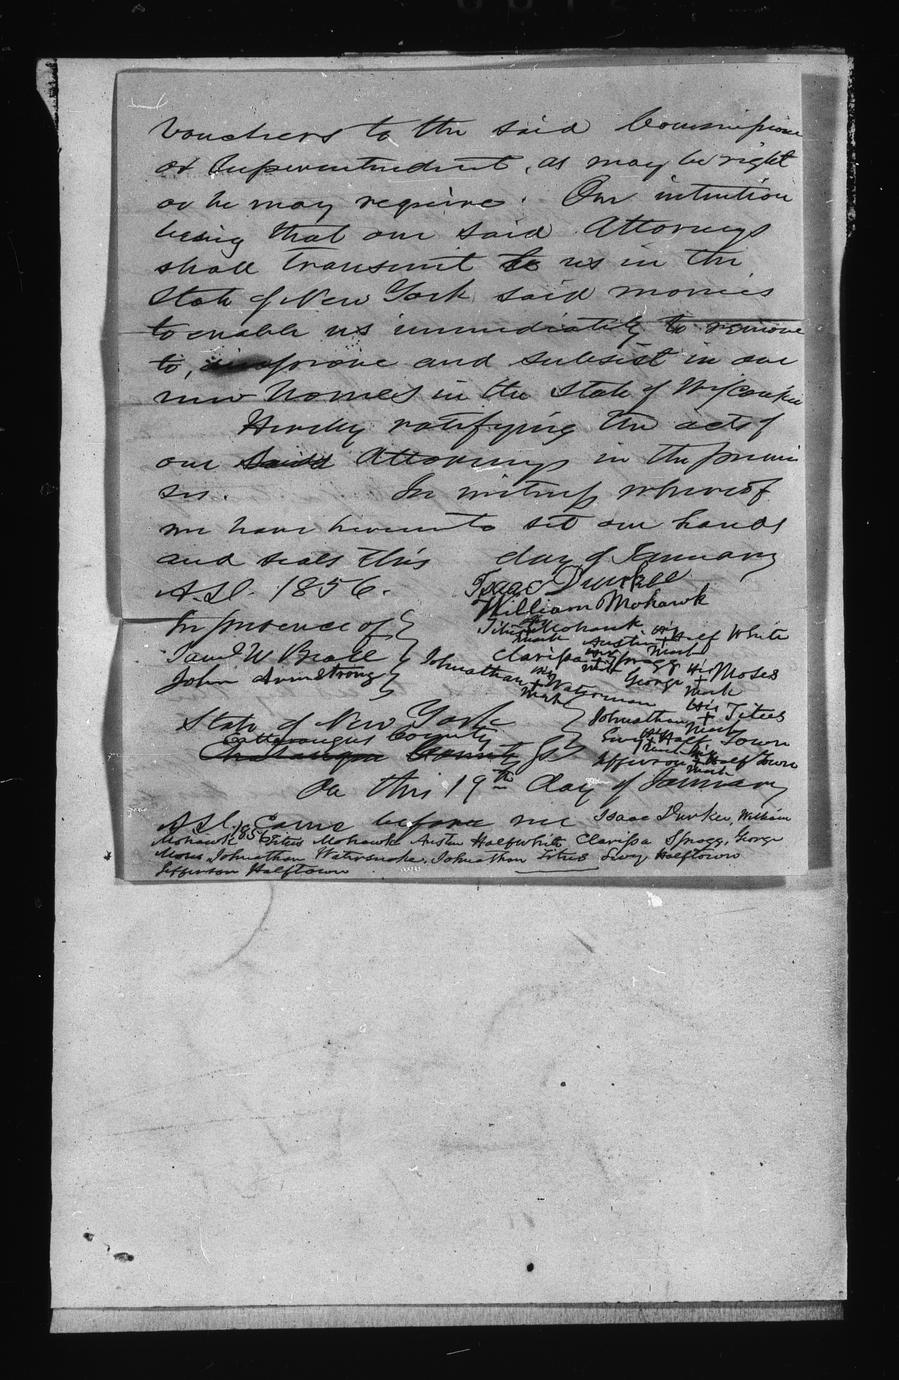 vouchers to the said Commissione
or Superintendent, as may be right
or he may require. Our intention
being that our said Attorneys
shall transmit to us in the
State of New York said monies
to enable us immediately to remove
to, improve and subsist in our
new homes in the State of Wisconsin
Hereby ratifying the acts of
our said Attorneys in the premi
ses. In witness whereof
we have hereunto set our hands
and seals this day of January
A.D. 1856.
Isaac Durkee
William Mohawk
In presence of
Titus his + mark Mohawk
Austin his + mark Half White
Saml W Beall
Clarissa her + mark Spragg
John Armstrong
George his + mark Moses
Johnathan his + mark Waterman
Johnathan his + mark Titus
State of New York
Cattaraugus County
Chautauqua County SS
his + mark Half Town
Jefferson his + mark Halftown
On this 19th day of January
A.D. 1856 came before me Isaac Durkee, William
Mohawk Titus Mohawk Austin Halfwhite Clarissa Spragg, George
Moses, Johnathan Watersnake, Johnathan Titus Halftown
Jefferson Halftown